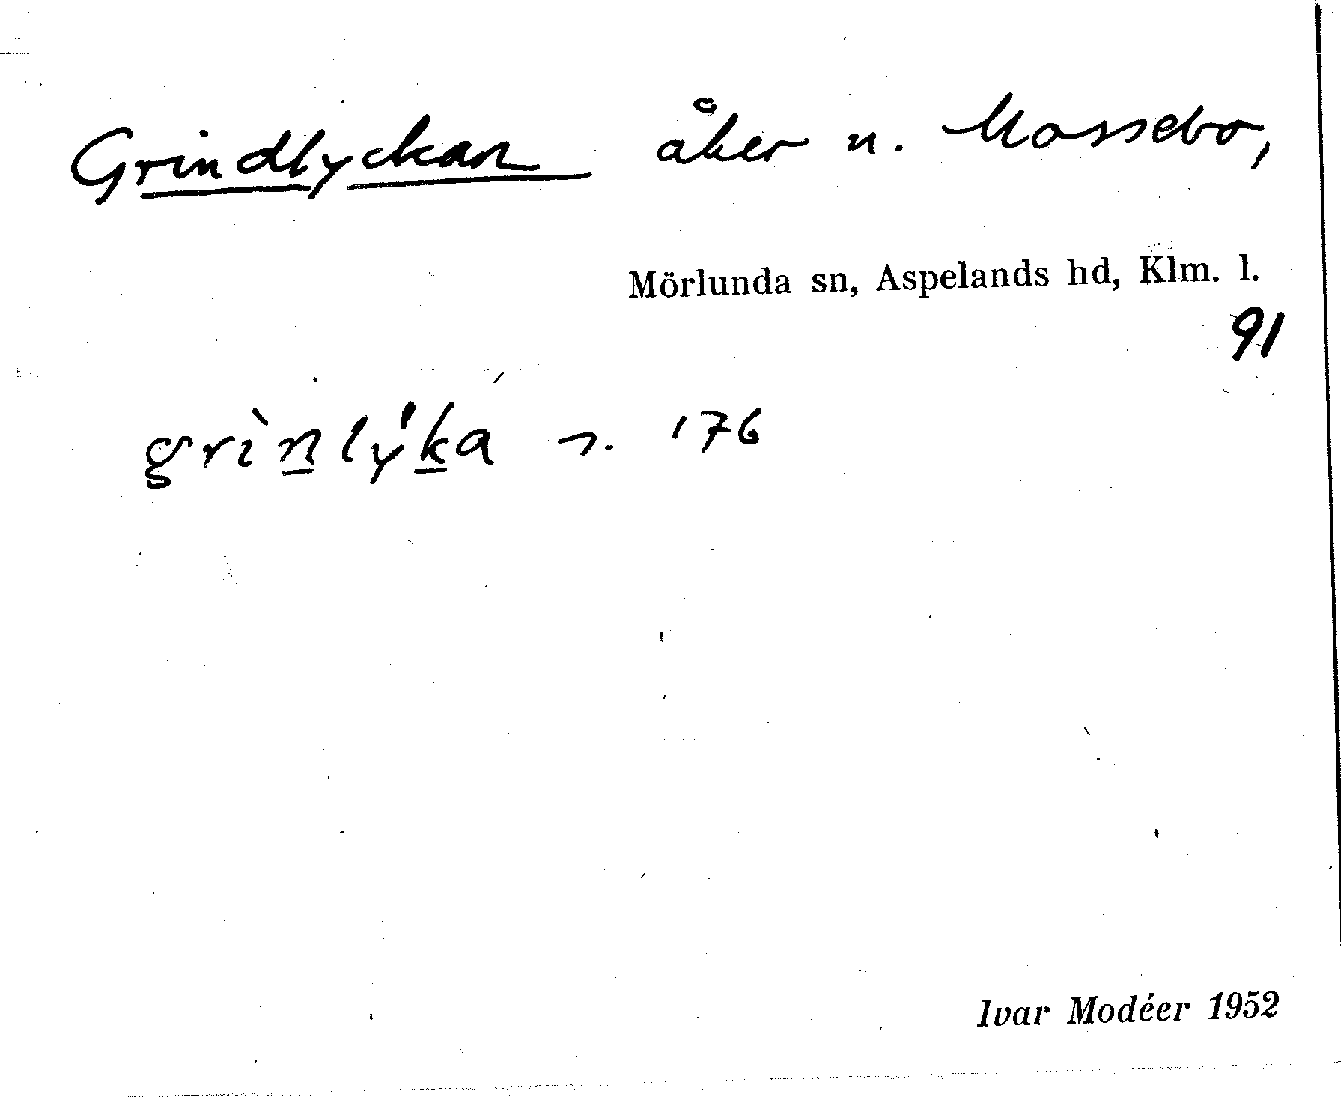 Grindlyckan åker n. Mossebo,
Mörlunda sn, Aspelands hd, Klm. l.
91
grìnlýka s. 176
Ivar Modéer 1952